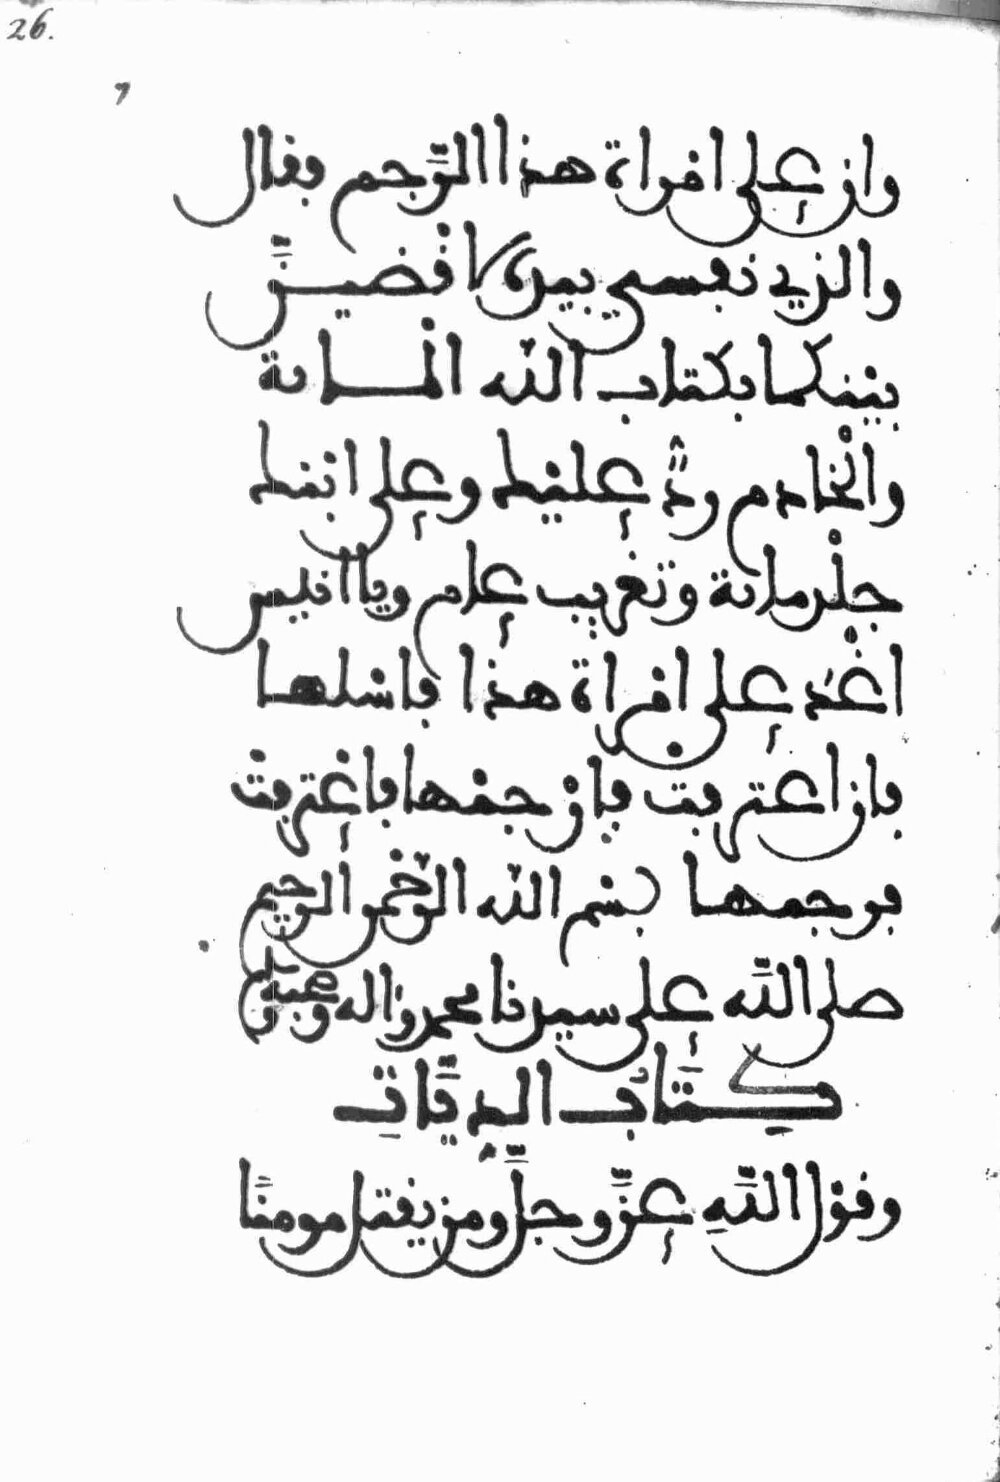 26.
وان على امراة هذا الرَّجم فقال
والذي نفسي بيده لاقضينَّ
بينكما بكتاب الله الماية
والْخادم ردٌّ عليك وعلى ابنك
جلْد ماية وتغريب عام ويا انيس
اغْد على امراة هذا فاسْلها
فان اعترفت فارْجمْها فاعْترفتْ
فرجمها بسْم الله الرّحْمن الرحيم
صلى اللَّه على سيدنا محمد واله وصحبه وسلم
كِتَابُ الدِيَّاتِ
وقوْل اللَّهِ عزَّ وجلَّ ومن يقتل مومنًا